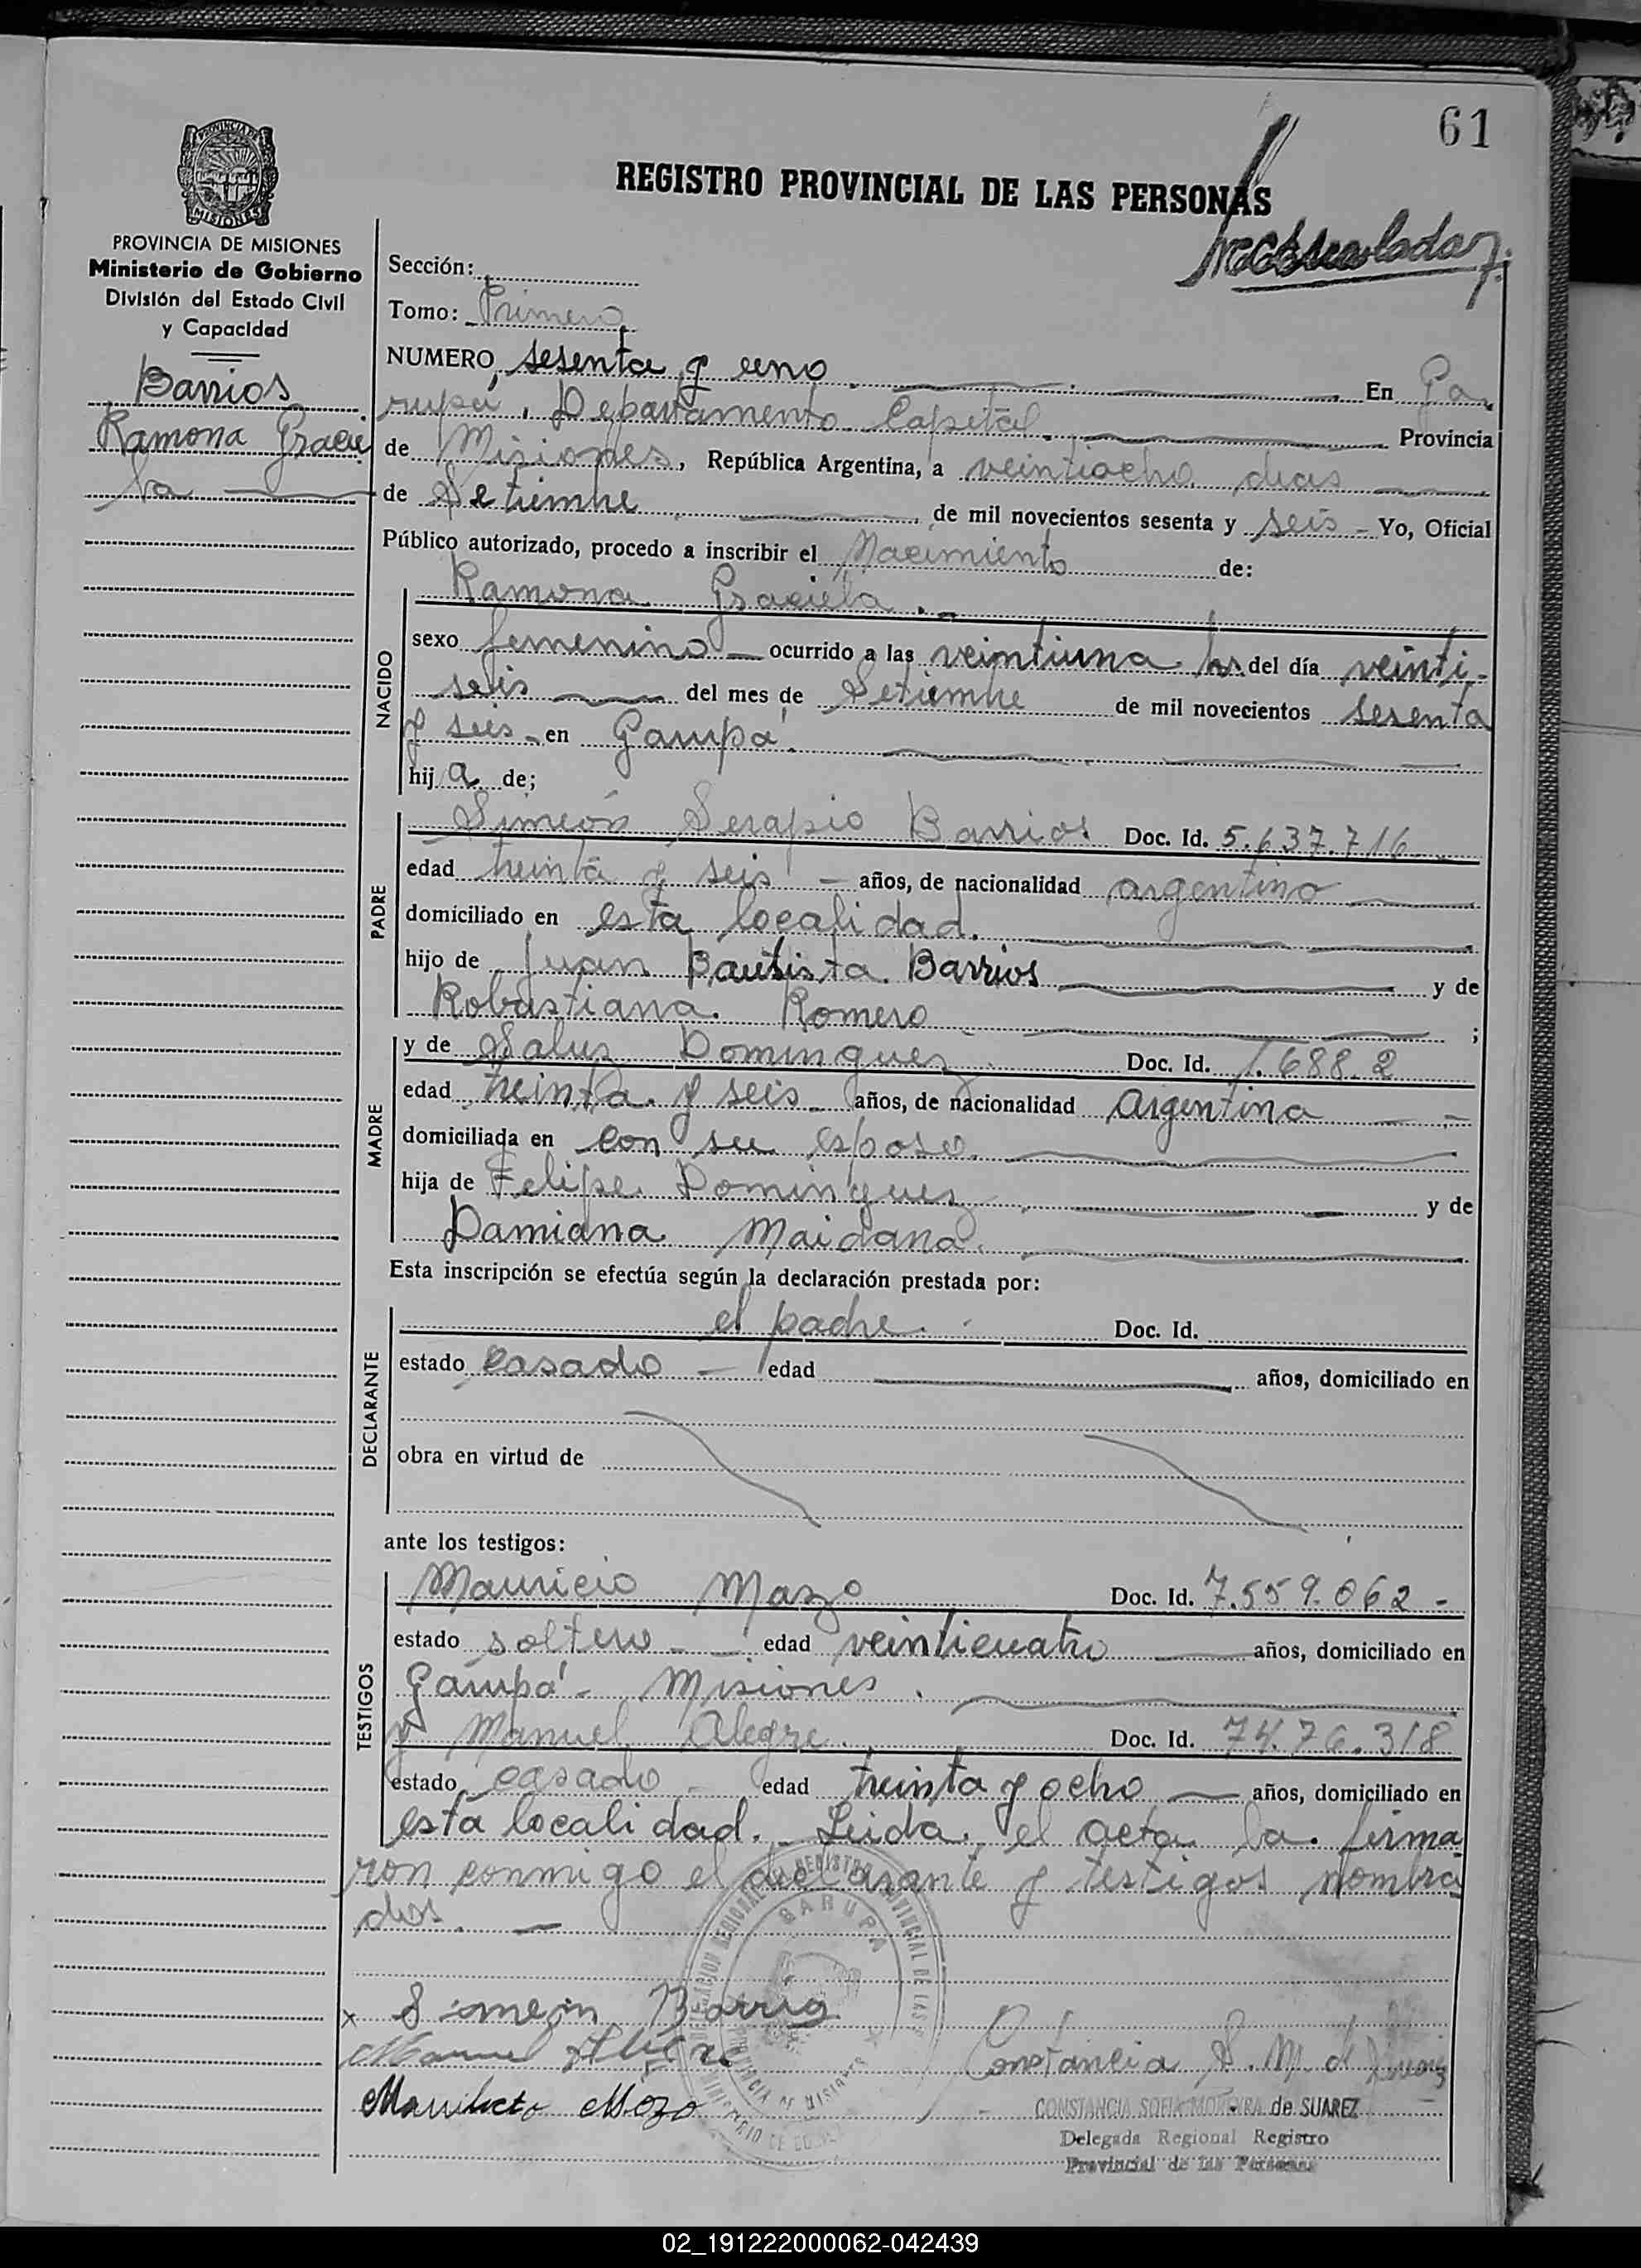 61
REGISTRO PROVINCIAL DE LAS PERSONAS
PROVINCIA DE
MISIONES
PROVINCIA DE MISIONES
Ministerio de Gobierno
División del Estado Civil
y Capacidad
Barrios
Ramona Gracie
la
Sección:
Tomo: Primero
NUMERO sesenta y uno En Ga
rupá, Departamento Capital. Provincia
de Misiones, República Argentina, a veintiocho dias
de Setiembre de mil novecientos sesenta y seis - Yo, Oficial
Público autorizado, procedo a inscribir el Nacimiento de:
NACIDO
Ramona Graciela.-
sexo femenino - ocurrido a las veintiuna hs. del día veinti-
seis del mes de Setiembre de mil novecientos sesenta
y seis - en Garupá.
hij a de;
PADRE
Simeón Serapio Barrios Doc. Id. 5.637.716
edad treinta y seis - años, de nacionalidad argentino
domiciliado en esta localidad.
hijo de Juan Bautista Barrios y de
Robustiana Romero ;
MADRE
y de Salus Dominguez Doc. Id. 1.688.2
edad treinta y seis - años, de nacionalidad argentina
domiciliada en con su esposo.
hija de Felipe Dominguez y de
Damiana Maidana.
Esta inscripción se efectúa según la declaración prestada por:
DECLARANTE
el padre. Doc. Id.
estado casado - edad años, domiciliado en
obra en virtud de
ante los testigos:
TESTIGOS
Mauricio Mazo Doc. Id. 7.559.062 -
estado soltero - edad veinticuatro años, domiciliado en
Garupá - Misiones.
y Manuel Alegre. Doc. Id. 74.76.318
estado casado - edad treinta y ocho años, domiciliado en
esta localidad. - Leida el acta la firma
ron conmigo el declarante y testigos nombra
dos. -
GARUPA
x Simeon Barrio
Manuel
Constancia S. M. d
Mozo
CONSTANCIA SOFIA de SUAREZ
Delegada Regional Registro
Provincial de las Personas
02_191222000062-042439